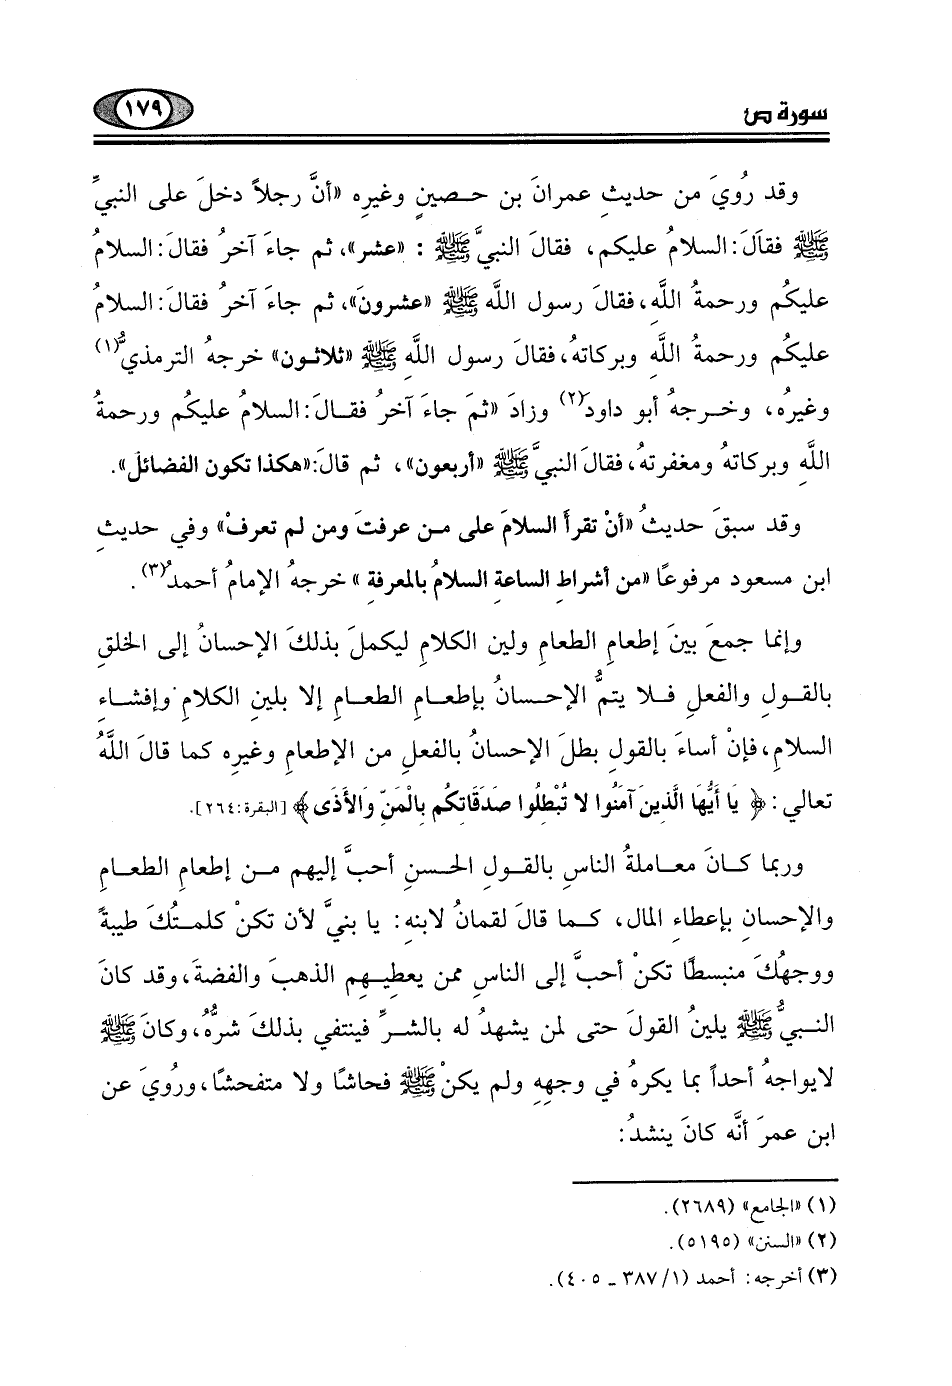 سورة ص
١٧٩
وقد رُويَ من حديثِ عمرانَ بن حصينٍ وغيرِه «أنَّ رجلاً دخلَ على النبيِّ
ﷺ فقالَ: السلامُ عليكم، فقالَ النبيَّ ﷺ : «عشر»، ثم جاءَ آخرُ فقالَ: السلامُ
عليكُم ورحمةُ اللَّهِ، فقالَ رسول اللَّه ﷺ «عشرونَ»، ثم جاءَ آخرُ فقالَ: السلامُ
عليكُم ورحمةُ اللَّهِ وبركاتهُ، فقالَ رسول اللَّهِ ﷺ «ثلاثون» خرجهُ الترمذيُّ(١)
وغيرُه، وخرجهُ أبو داودَ(٢) وزادَ «ثمَ جاءَ آخرُ فقالَ: السلامُ عليكُم ورحمةُ
اللَّهِ وبركاتهُ ومغفرتهُ، فقالَ النبيَّ ﷺ «أربعون»، ثم قالَ: «هكذا تكون الفضائل».
وقد سبقَ حديثُ «أنْ تقرأَ السلامَ على من عرفتَ ومن لم تعرفْ» وفي حديثِ
ابن مسعود مرفوعًا «من أشراطِ الساعةِ السلامُ بالمعرفةِ» خرجهُ الإمامُ أحمدُ(٣).
وإنما جمعَ بينَ إطعامِ الطعامِ ولين الكلامِ ليكملَ بذلكَ الإحسانُ إلى الخلقِ
بالقولِ والفعلِ فلا يتمُّ الإحسانُ بإطعامِ الطعامِ إلا بلينِ الكلامِ وإفشاءِ
السلامِ، فإنْ أساءَ بالقولِ بطلَ الإحسانُ بالفعلِ من الإطعامِ وغيرِه كما قالَ اللَّهُ
تعالي: ﴿ يَا أَيُّهَا الَّذِينَ آمَنُوا لا تُبْطِلُوا صَدَقَاتِكُم بِالْمَنِّ وَالأَذَى ﴾ [البقرة:٢٦٤].
وربما كانَ معاملةُ الناسِ بالقولِ الحسنِ أحبَّ إليهم من إطعامِ الطعامِ
والإحسانِ بإعطاءِ المال، كما قالَ لقمانُ لابنهِ: يا بنيَّ لأن تكنْ كلمتُكَ طيبةً
ووجهُكَ منبسطًا تكنْ أحبَّ إلى الناسِ ممن يعطيهم الذهبَ والفضةَ، وقد كانَ
النبيُّ ﷺ يلينُ القولَ حتى لمن يشهدُ له بالشرِّ فينتفي بذلكَ شرُّهُ، وكانَ ﷺ
لايواجهُ أحداً بما يكرهُ في وجههِ ولم يكنْ ﷺ فحاشًا ولا متفحشًا، ورُويَ عن
ابن عمرَ أنَّه كانَ ينشدُ:
(١) «الجامع» (٢٦٨٩).
(٢) «السنن» (٥١٩٥).
(٣) أخرجه: أحمد (١/ ٣٨٧ ـ ٤٠٥).